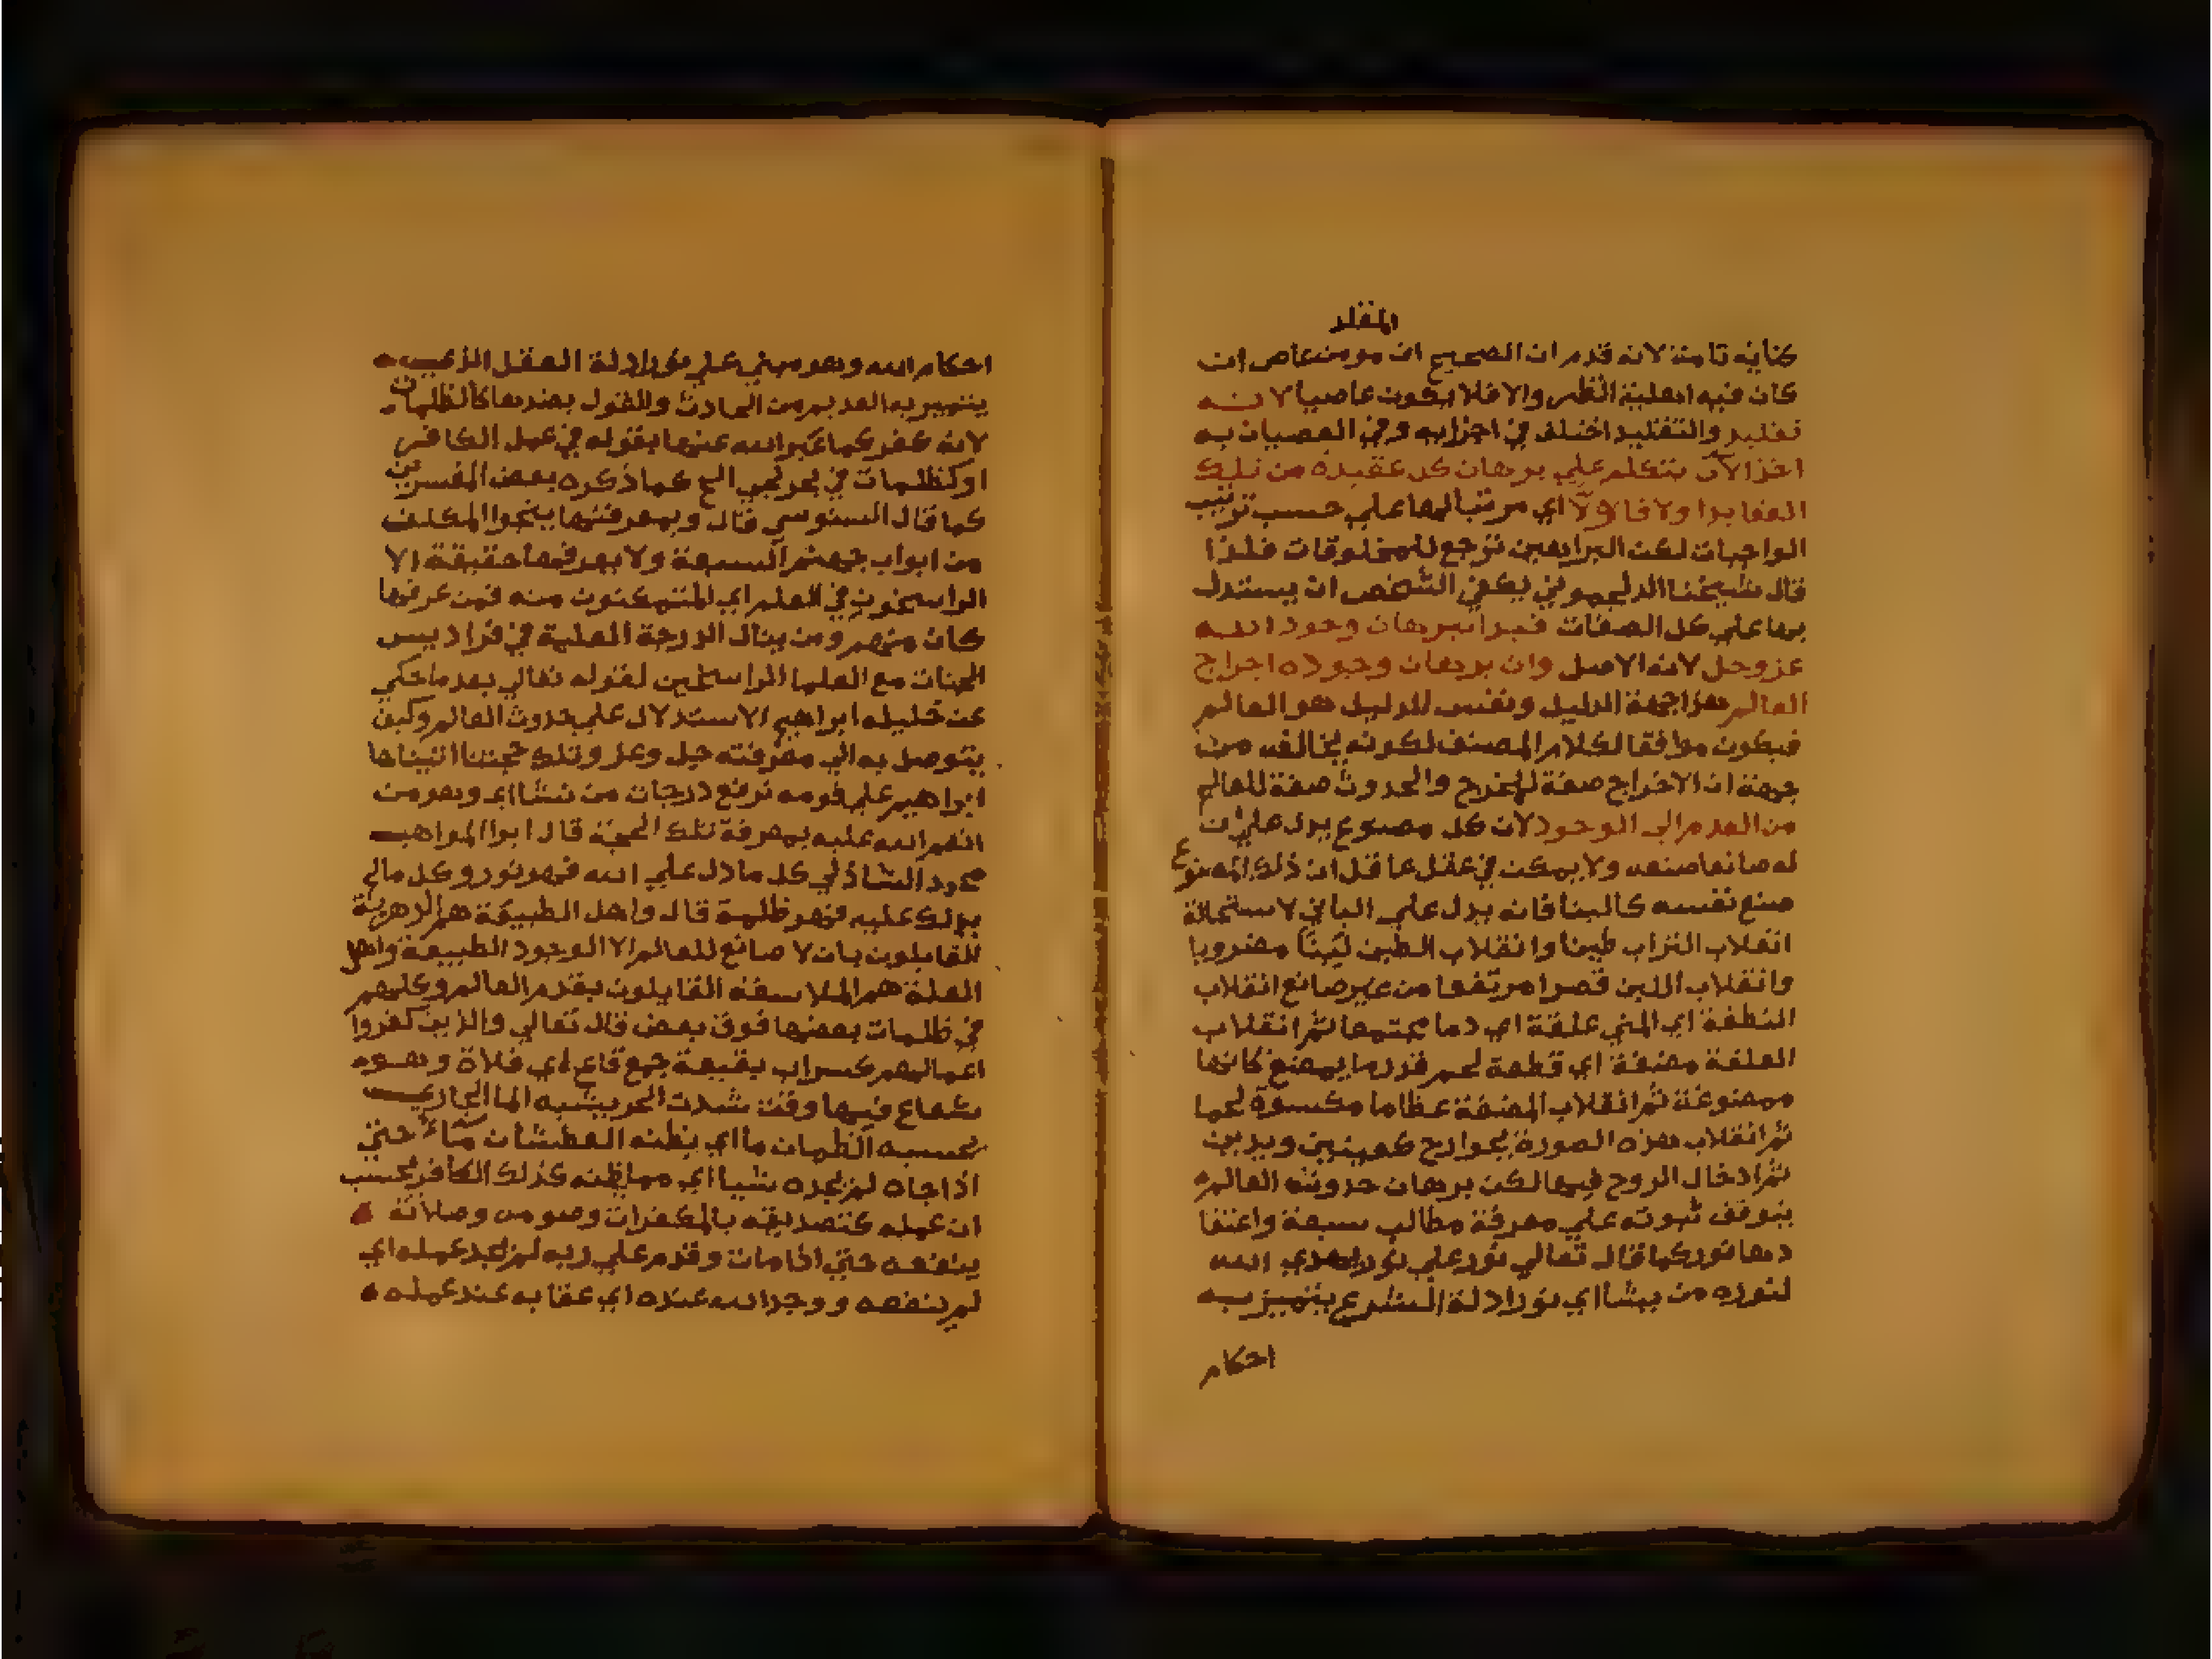 المقلد
كفاية تامة لانه قدم ان الصحيح ان مومن عاص ان
كان فيه اهلية النظر والا فلا يكون عاصيا لانه
تقليد والتقليد اختلف في اجزايه وفي العصيان به
اخذ الآن يتكلم علي برهان كل عقيدة من تلك
العقايد اولا فاولا اي مرتبا لها علي حسب ترتيب
الواجبات لكن البراهين ترجع للمخلوقات فلذا
قال شيخنا الدلجموني يكفي الشخص ان يستدل
بها علي كل الصفات فبدا ببرهان وجود الله
عز وجل لانه الاصل وان برهان وجوده اخراج
العالم هذا جهة الدليل ونفس الدليل هو العالم
فيكون موافقا لكلام المصنف لكونه يخالفه من
جهة ان الاخراج صفة للمخرج والحدوث صفة للعالم
من العدم الي الوجود لان كل مصنوع يدل علي ان
له صانعا صنعه ولا يمكن في عقل عاقل ان ذلك المصنوع
صنع نفسه كالبنا فانه يدل علي الباني لاستحالة
انقلاب التراب طينا وانقلاب الطين لبنا مضروبا
وانقلاب اللبن قصرا مرتفعا من غير صانع انقلاب
النطفة اي المني علقة اي دما مجتمعا ثم انقلاب
العلقة مضغة اي قطعة لحم قدر ما يمضغ كانها
ممضوغة ثم انقلاب المضغة عظاما مكسوة لحما
ثم انقلاب هذه الصورة بجوارح كعينين ويدين
ثم ادخال الروح فيها لكن برهان حدوثه العالم
يتوقف ثبوته علي معرفة مطالب سبعة واعتقا
دها نور كما قال تعالي نور علي نور يهدي الله
لنوره من يشا اي نور ادلة الشرع يتميز به
احكام
احكام الله وهو مبني علي نور ادلة العقل الذي
يتميز به القديم من الحادث والقول بضدها كالظلمات
لانه كفر كما عبر الله عنها بقوله في عمل الكافر
او كظلمات في بحر لجي الخ كما ذكره بعض المفسرين
كما قال السنوسي قال وبمعرفتها ينجوا المكلف
من ابواب جهنم السبعة ولا يعرفها حقيقة الا
الراسخون في العلم اي المتمكنون منه فمن عرفها
كان منهم ومن ينال الدرجة العلية في فراديس
الجنات مع العلما الراسخين لقوله تعالي بعد ما حكي
عن خليله ابراهيم الاستدلال علي حدوث العالم وكيف
يتوصل به الي معرفته جل وعلا وتلك حجتنا اتيناها
ابراهيم علي قومه نرفع درجات من نشا اي وهو من
انعم الله عليه بمعرفة تلك الحجة قال ابوا المواهب
محمد الشاذلي كل ما دل علي الله فهو نور وكل مالم
يدلك عليه فهو ظلمة قال واهل الطبيعة هم الدهرية
القايلون بان لا صانع للعالم الا الوجود الطبيعة واهل
العلة هم الفلاسفة القايلون بقدم العالم وعلمهم
في ظلمات بعضها فوق بعض قال تعالي والذين كفروا
اعمالهم كسراب بقيعة جمع قاع اي فلاة وهو
شعاع فيها وقت شدت الحر يشبه الما الجاري
يحسبه الظمان ما اي يظنه العطشان ماء حتي
اذا جاه لم يجده شيا اي مما ظنه كذلك الكافر يحسب
ان عمله كتصديقه بالمكفرات وصومه وصلاته
ينفعه حتي اذا مات وقدم علي ربه لم يجد عمله اي
لم ينفعه ووجد الله عنده اي عقابه عند عمله